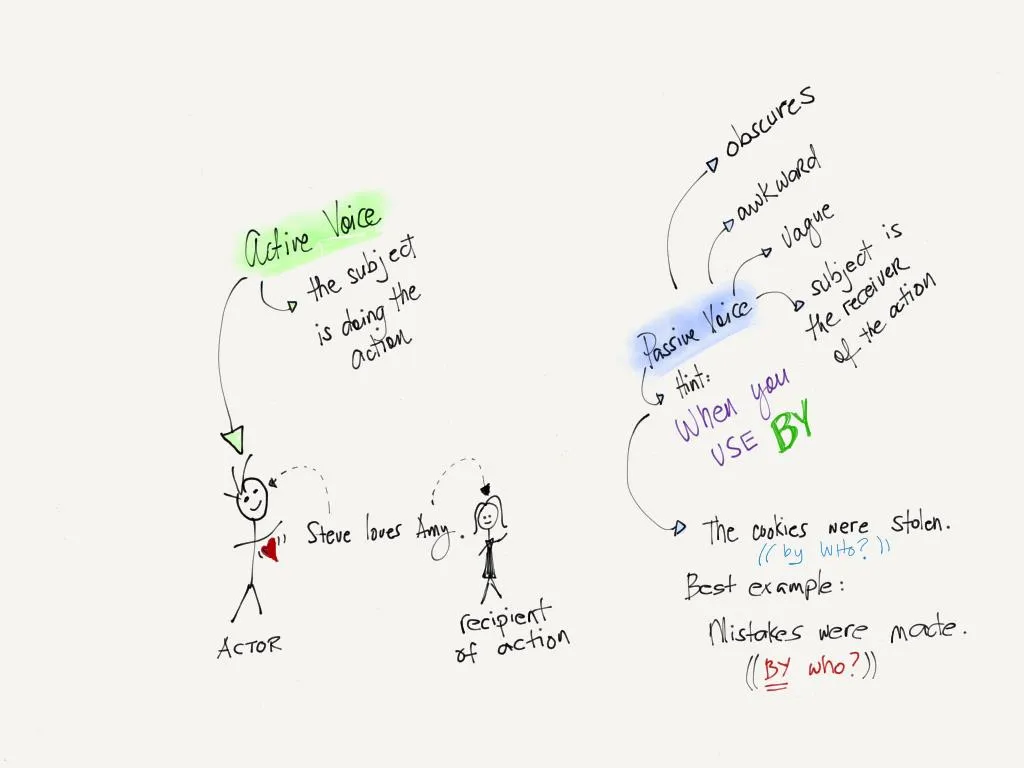 Active Voice
the subject
is doing the
action
Steve loves Amy.
ACTOR
recipient
of action
obscures
awkward
vague
subject is
the receiver
of the action
Passive Voice
Hint:
When you
USE BY
The cookies were stolen.
((by WHO?))
Best example:
Mistakes were made.
((BY who?))